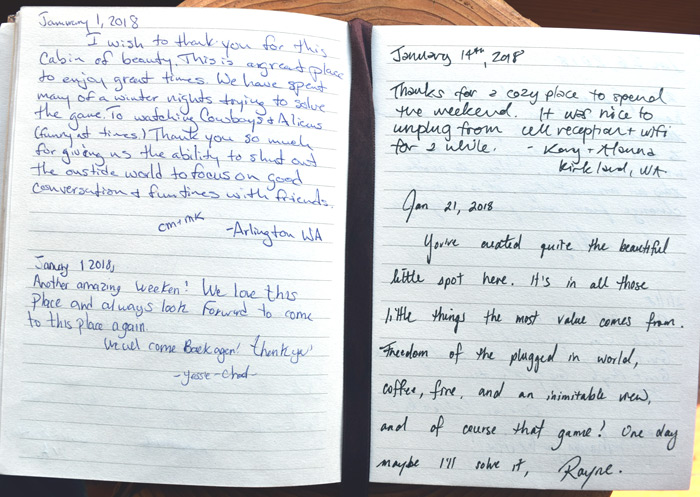 January 1, 2018
I wish to thank you for this
Cabin of beauty. This is a great place
to enjoy great times. We have spent
many of a winter nights trying to solve
the game. To watching Cowboys & Aliens
(funnyest times!) Thank you so much
for giving us the ability to shut out
the oustide world to focus on good
conversation & fun times with friends.
cm+mk
-Arlington WA
January 1 2018,
Another amazing weeken! We love this
Place and always look forward to come
to this place again.
We wel come Back agen! thank you'
-yesse-Chad-
January 14th, 2018
Thanks for a cozy place to spend
the weekend. It was nice to
unplug from cell reception + wifi
for a while. - Kory + Alanna
Kirkland, WA
Jan 21, 2018
You've created quite the beautiful
little spot here. It's in all those
little things the most value comes from.
Freedom of the plugged in world,
coffee, fire, and an inimitable view,
and of course that game! One day
maybe I'll solve it, Rayne.